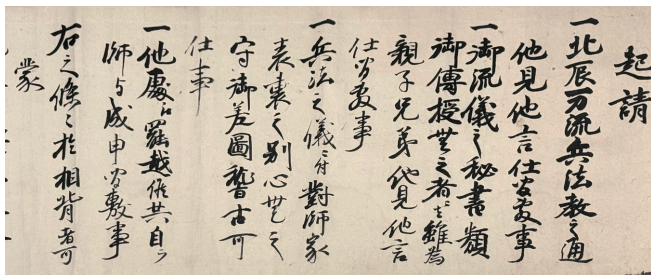 起請
一北辰万流兵法教之通
他見他言仕間敷事
一御流儀之秘書類
御傳授無之者ニは雖為
親子兄弟他見他言
仕間敷事
一兵法之儀ニ付對師家
表裏之別心無之
守御差圖稽古可
仕事
一他處江罷越候共自分
師与成申間敷事
右之條々於相背者可
蒙